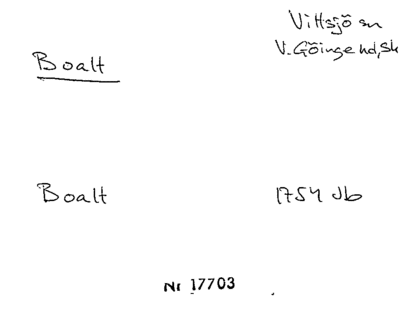 Vittsjö sn
V. Göinge hd, Sk
Boalt
Boalt 1754 Jb
Nr 17703